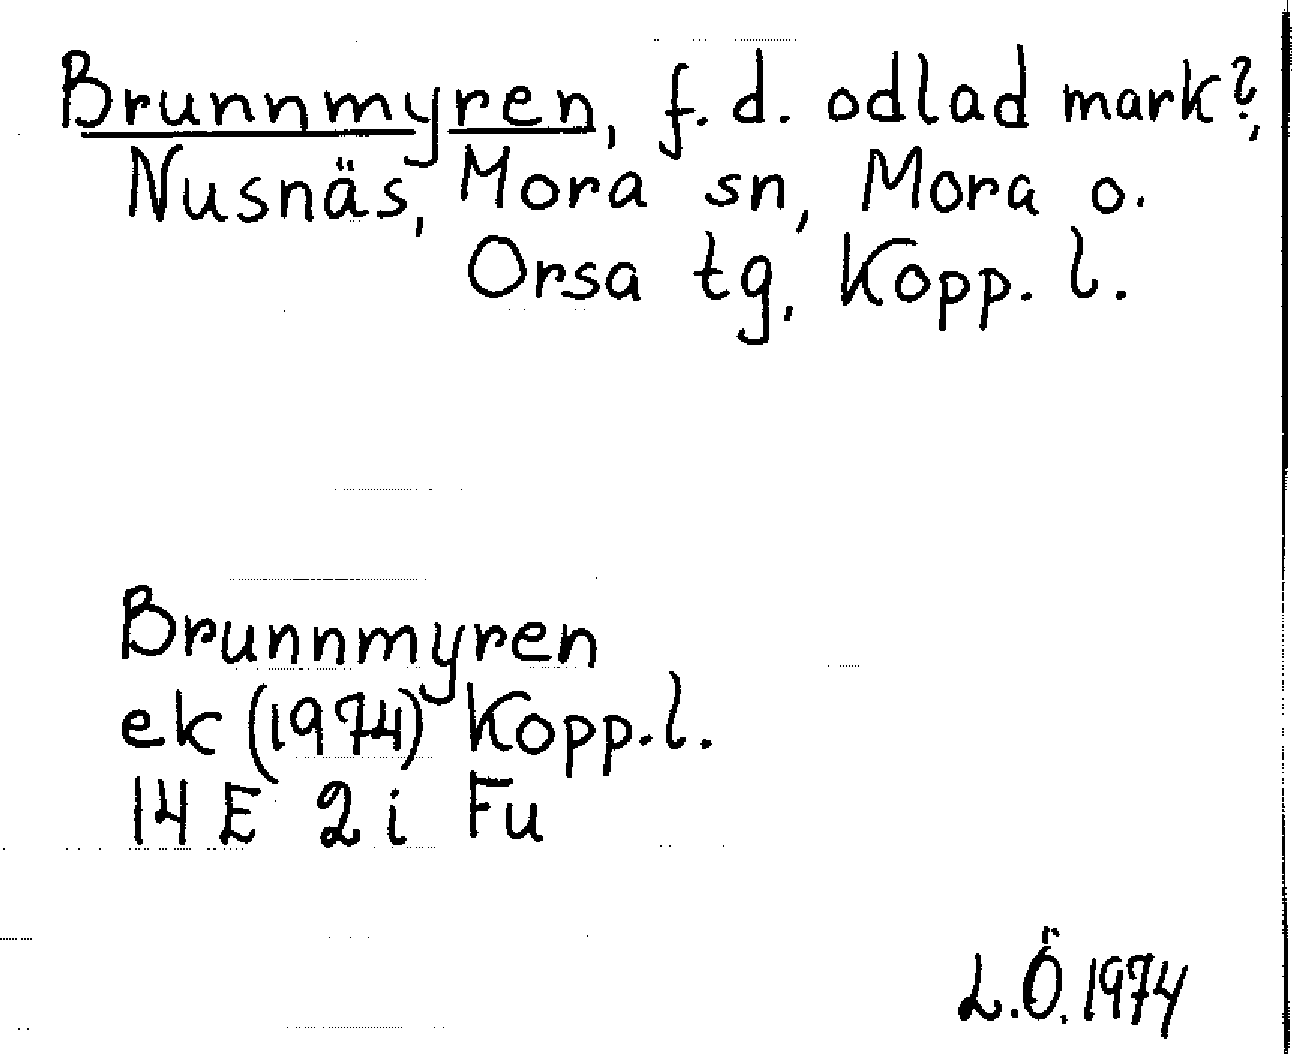 Brunnmyren, f.d. odlad mark?,
Nusnäs, Mora sn, Mora o.
Orsa tg, Kopp. l.
Brunnmyren
ek (1974) Kopp.l.
14 E 2 i Fu
L.Ö. 1974